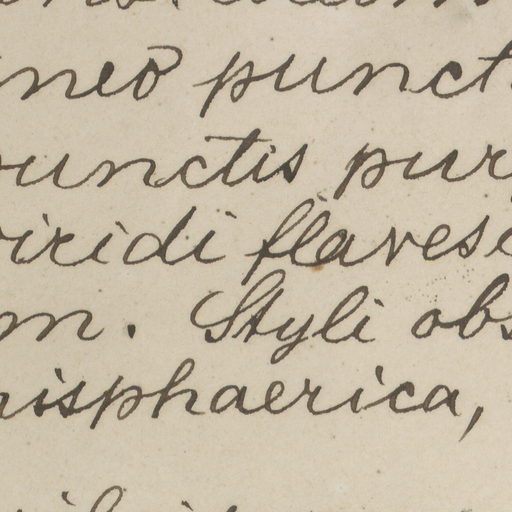 ineo punct
punctis pur
viridi flaves
m. Styli obs
misphaerica,